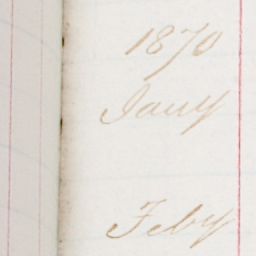 1870
Jany
Feby